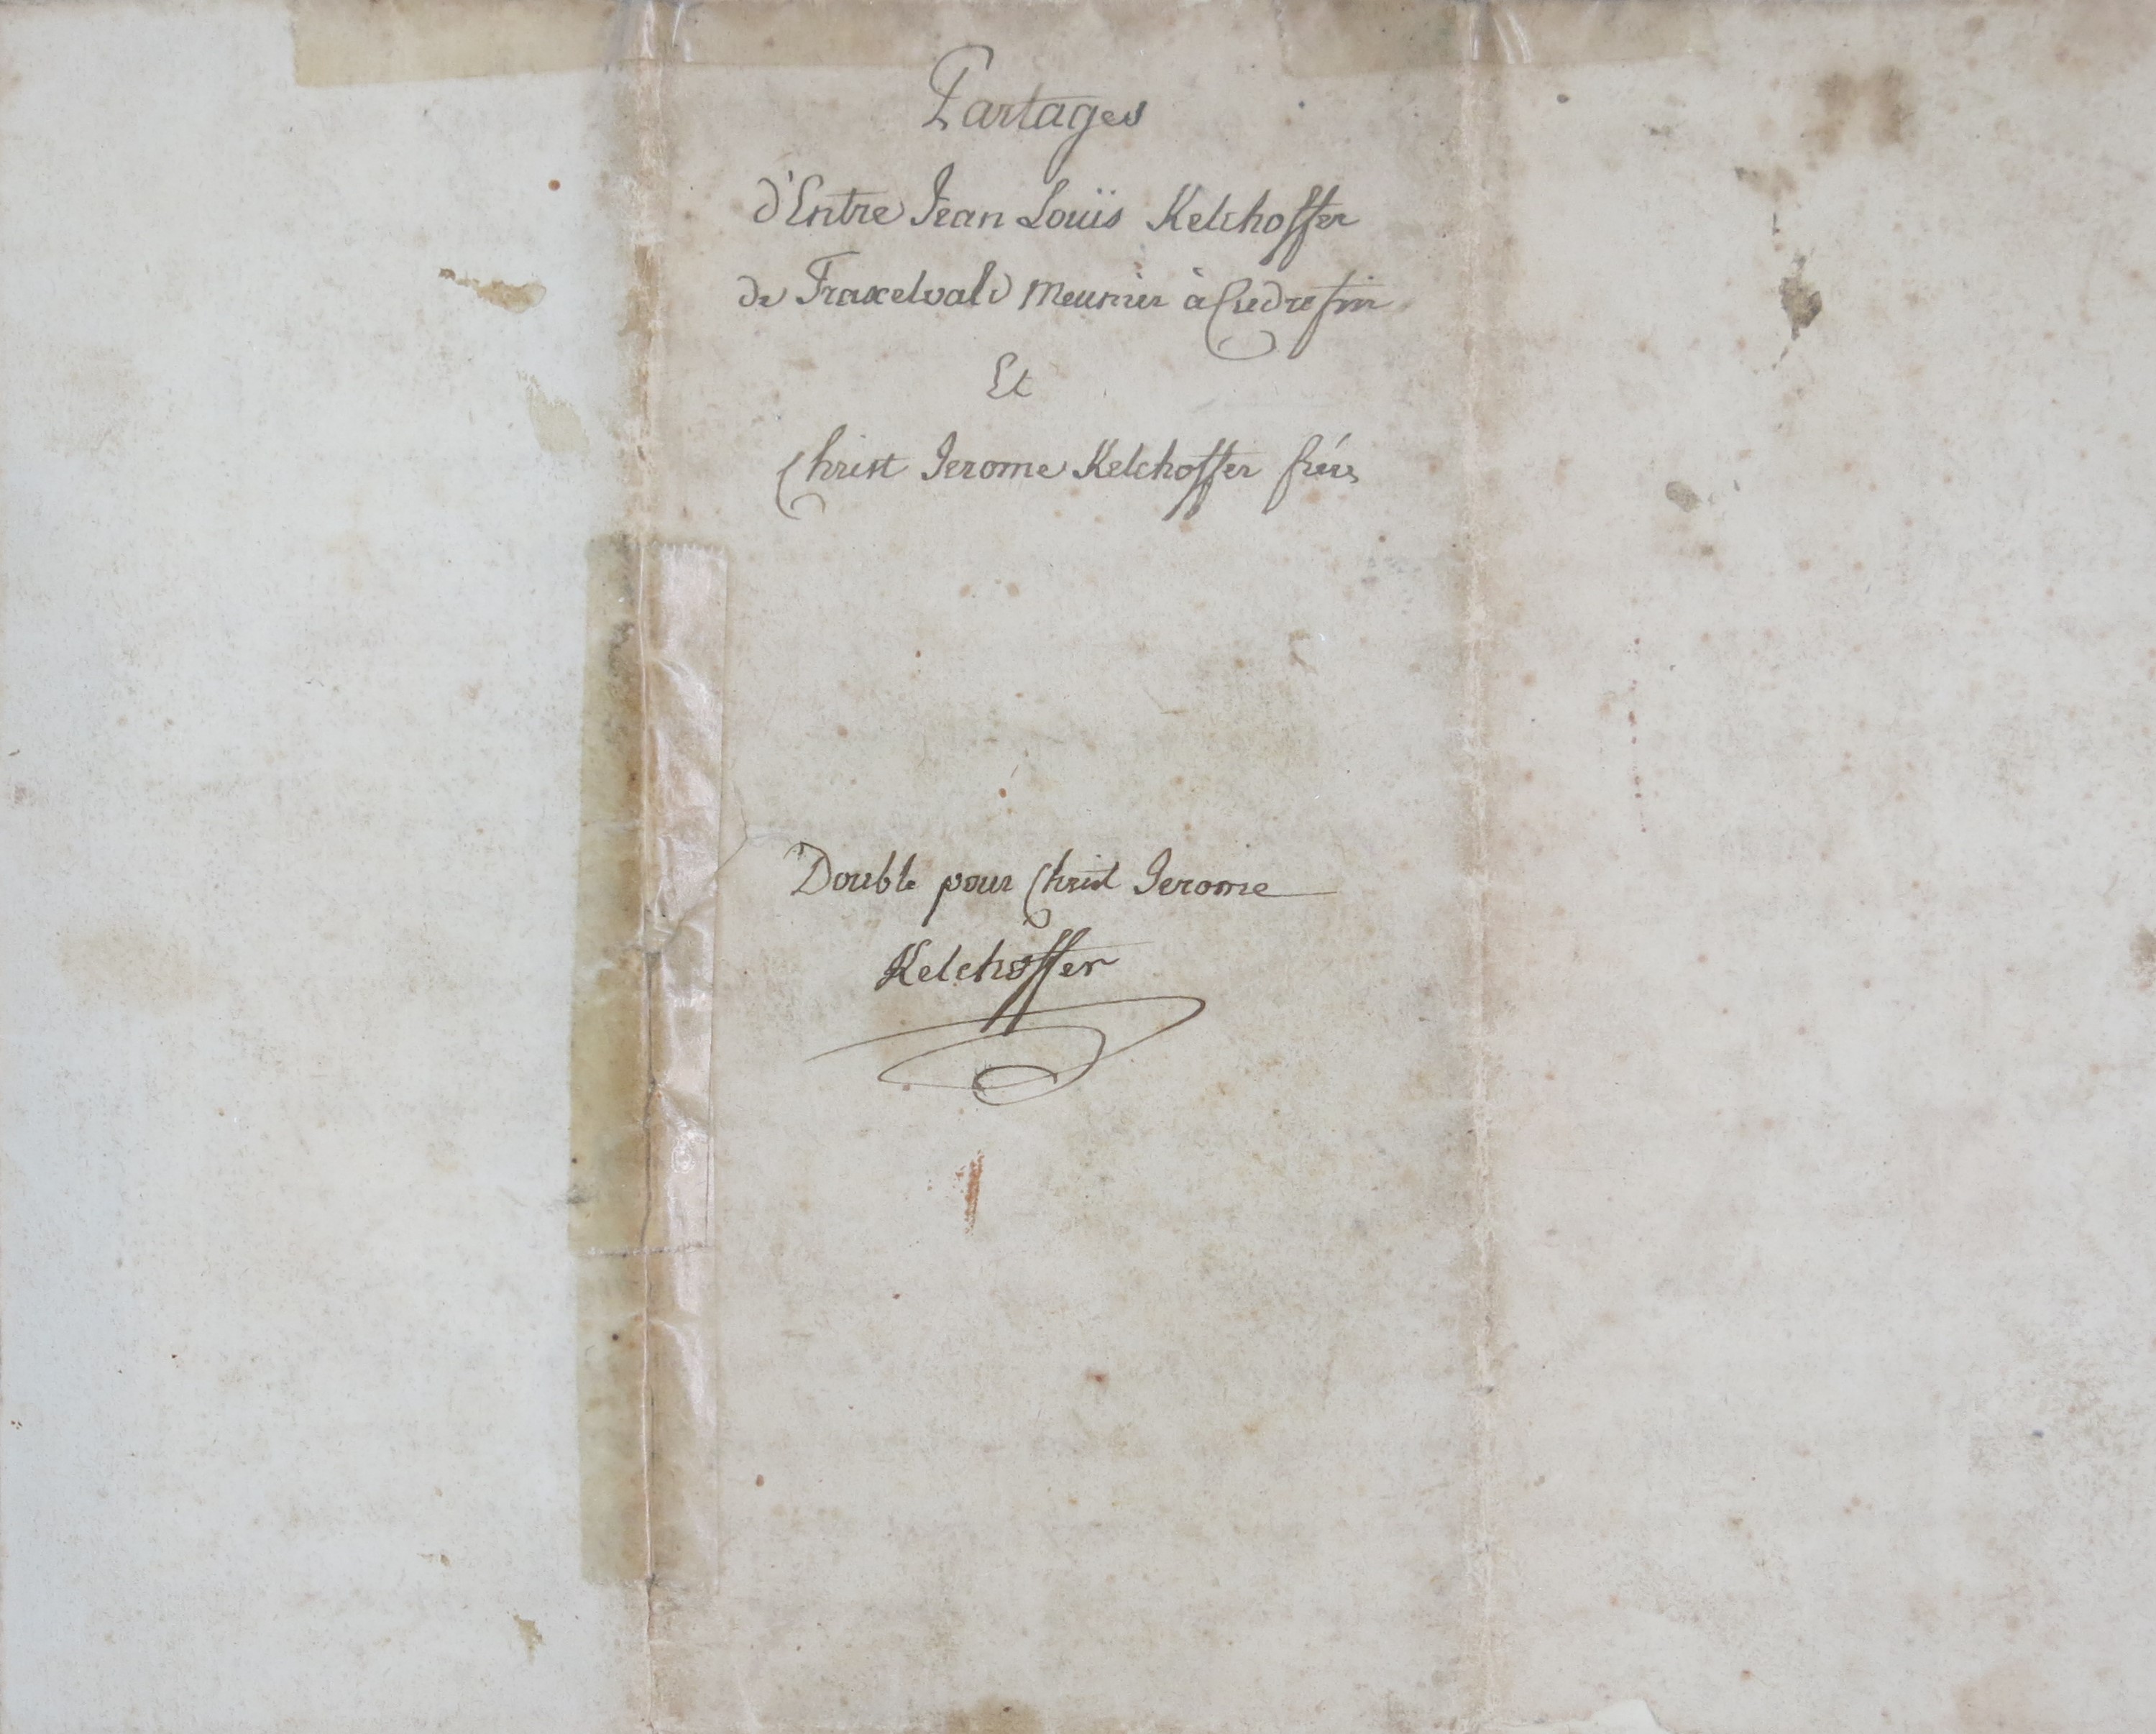 Partages
d'Entre Jean Louïs Kelchoffer
de Fraxelvald Meunier à Cudrefin
Et
Christ Jerome Kelchoffer frére
Double pour Christ Jerome
Kelchoffer